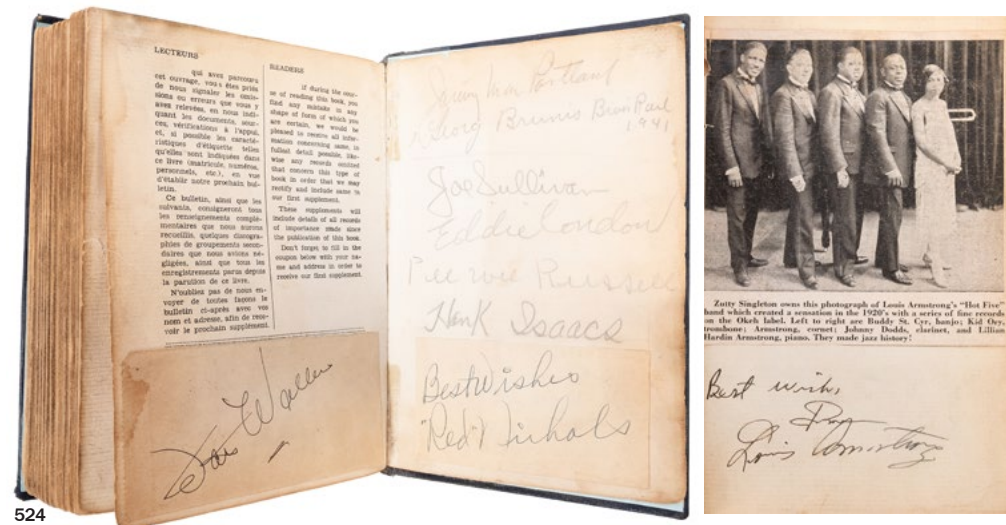 LECTEURS
qui avez parcouru
cet ouvrage, vous êtes priés
de nous signaler les omis-
sions ou erreurs que vous y
avez relevées, en nous indi-
quant les documents, sour-
ces, vérifications à l'appui,
et, si possible les caracté-
ristiques d'étiquette telles
qu'elles sont indiquées dans
ce livre (matricule, numéros,
personnels, etc.), en vue
d'établir notre prochain bul-
letin.
Ce bulletin, ainsi que les
suivants, consigneront tous
les renseignements complé-
mentaires que nous aurons
recueillis, quelques discogra-
phies de groupements secon-
daires que nous avions né-
gligées, ainsi que tous les
enregistrements parus depuis
la parution de ce livre.
N'oubliez pas de nous en-
voyer de toutes façons le
bulletin ci-après avec vos
nom et adresse, afin de rece-
voir le prochain supplément.
READERS
if during the cour-
se of reading this book, you
find any mistake in any
shape of form of which you
are certain, we would be
pleased to receive all infor-
mation concerning same, in
fullest detail possible, like-
wise any records omitted
that concern this type of
book in order that we may
rectify and include same in
our first supplement.
These supplements will
include details of all records
of importance made since
the publication of this book.
Don't forget to fill in the
coupon below with your na-
me and address in order to
receive our first supplement
Fats Waller
Jimmy McPartland
Georg Brunis
1941
Joe Sullivan
Eddie Condon
Pee wee Russell
Hank Isaacs
Best Wishes
"Red" Nichols
Zutty Singleton owns this photograph of Louis Armstrong's "Hot Five"
band which created a sensation in the 1920's with a series of fine records
on the Okeh label. Left to right are Buddy St. Cyr, banjo; Kid Ory,
trombone; Armstrong, cornet; Johnny Dodds, clarinet, and Lillian
Hardin Armstrong, piano. They made jazz history!
Best wishes
Louis Armstrong
524